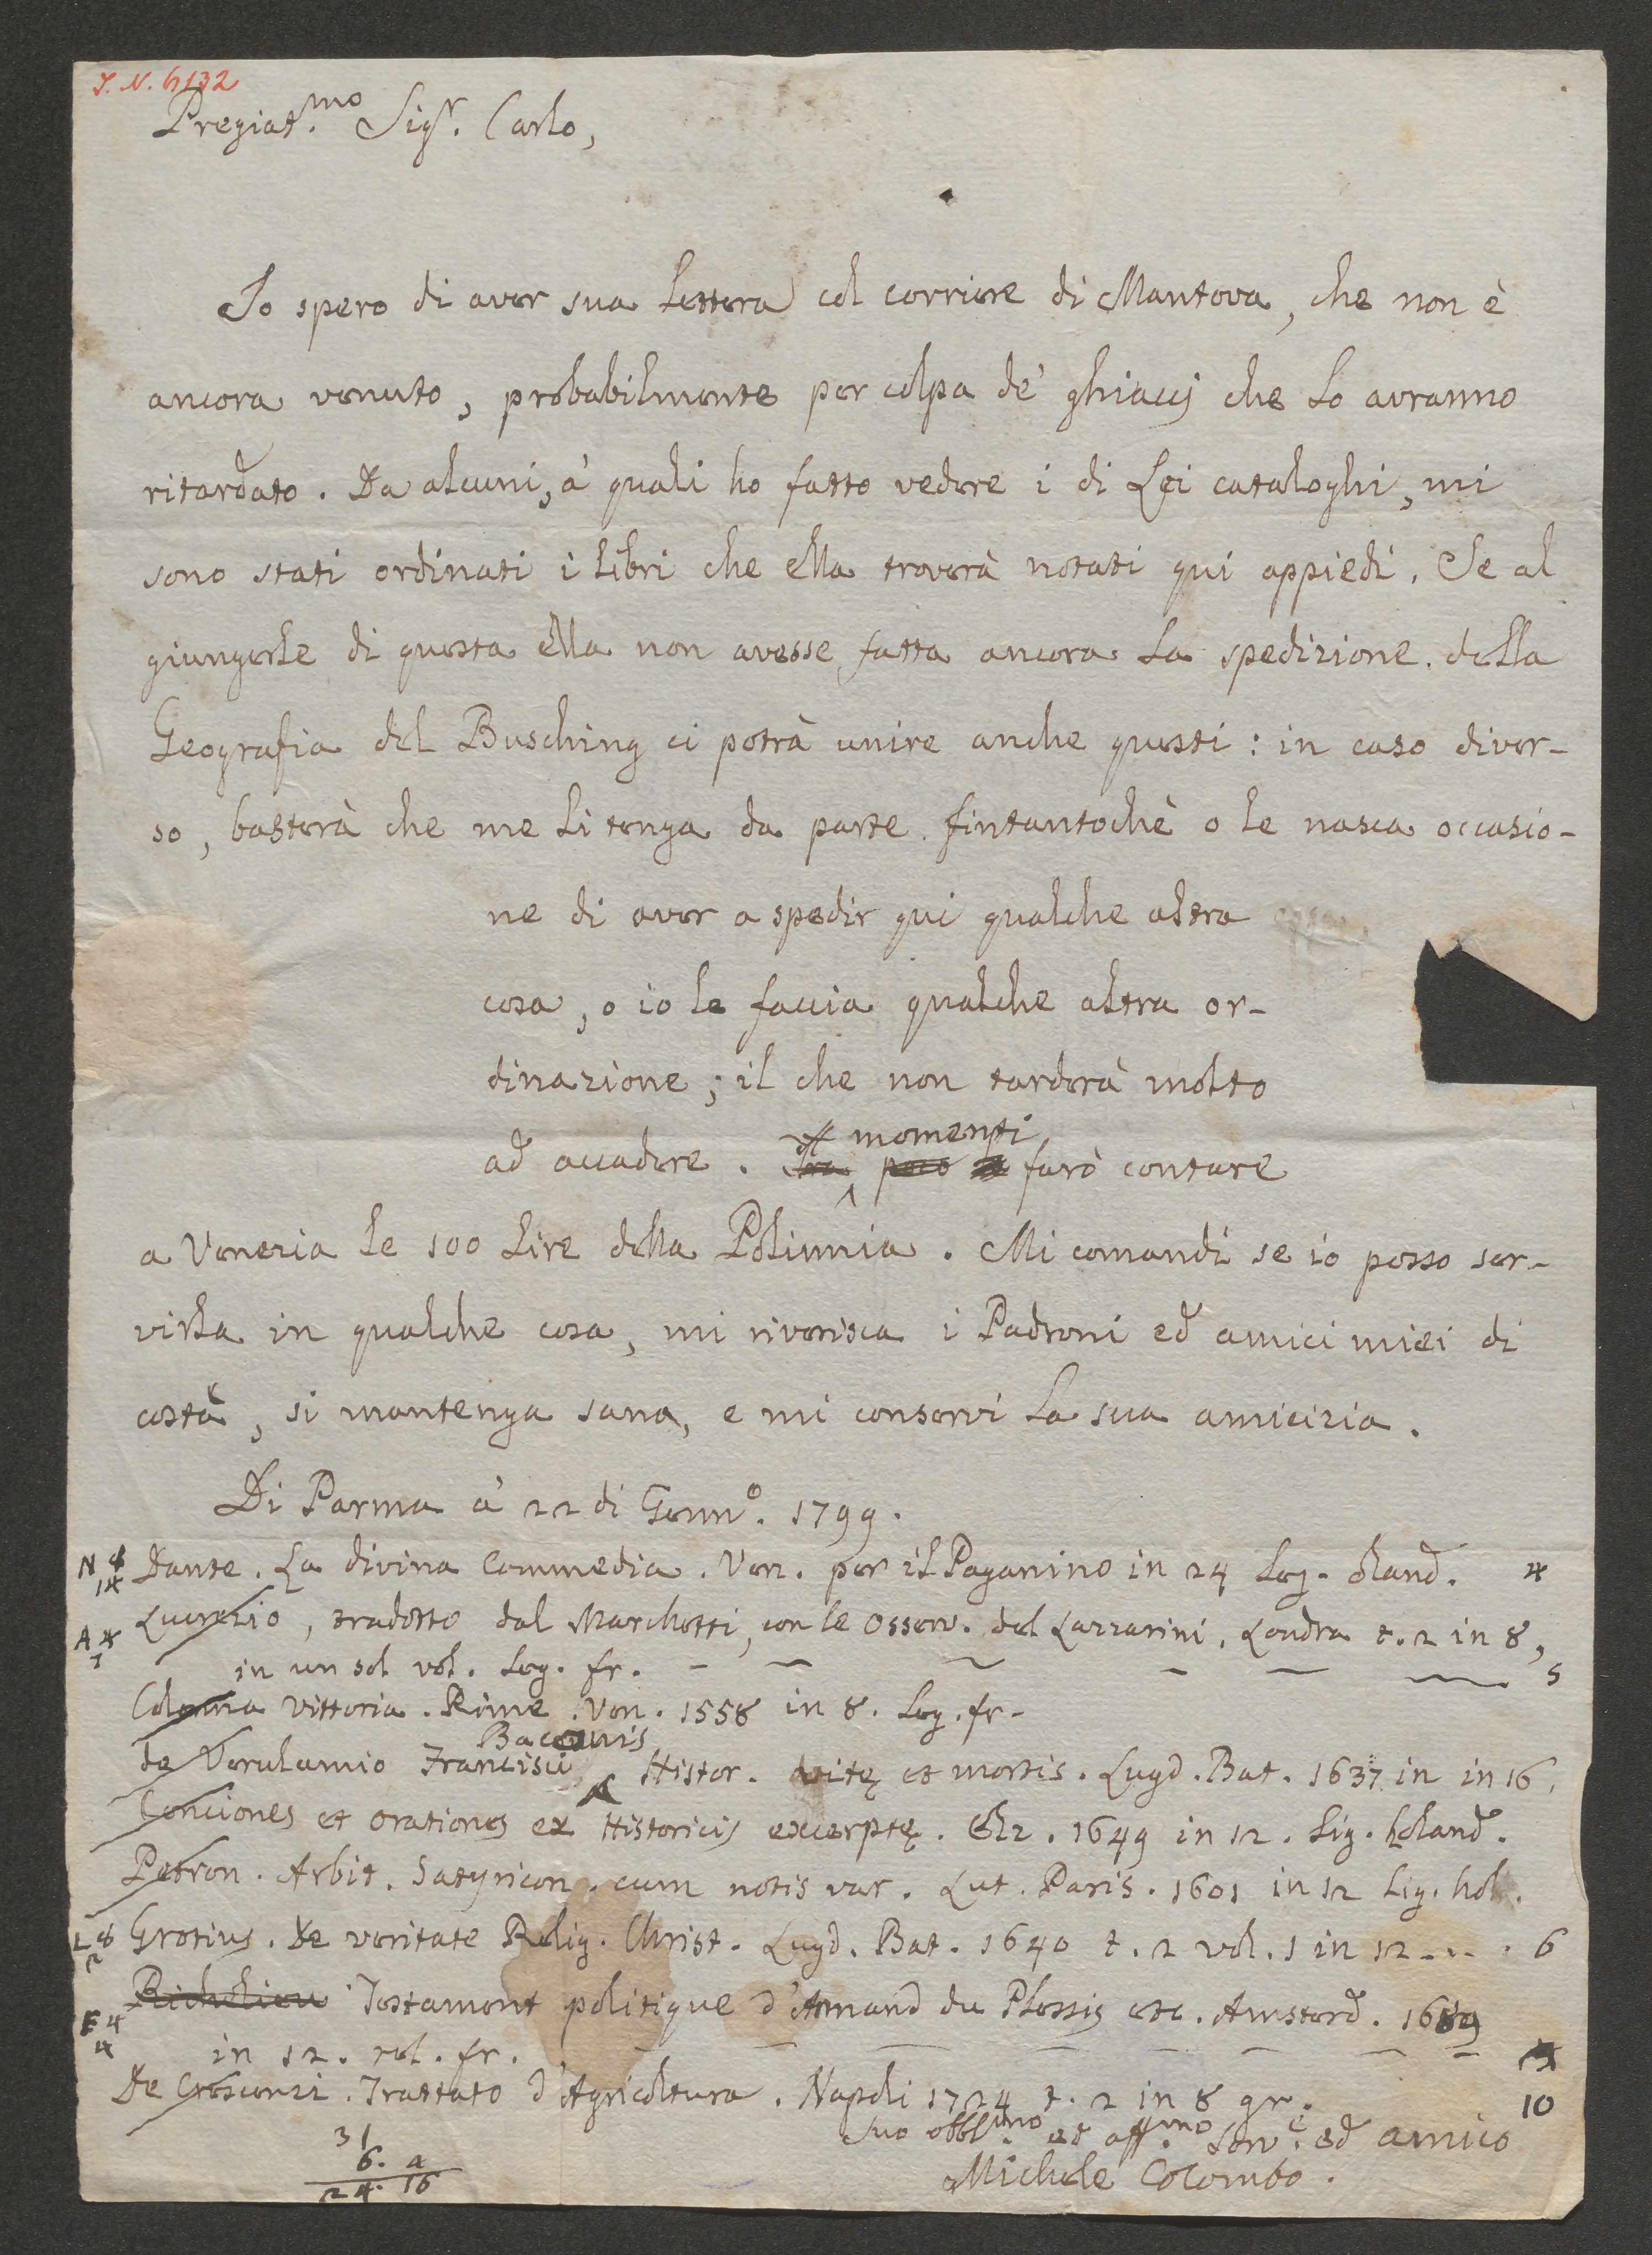 I. N. 6132
Pregiat.mo Sigr. Carlo,
Io spero di aver sua Lettera col corriere di Mantova, che non è
ancora venuto, probabilmente per colpa de' ghiacci che Lo avranno
ritardato. Da alcuni, a' quali ho fatto vedere i di Lei cataloghi, mi
sono stati ordinati i Libri che ella troverà notati qui appiedi. Se al
giungerle di questa ella non avesse fatta ancora La spedizione della
Geografia del Busching ci potrà unire anche questi: in caso diver-
so, basterà che me Li tenga da parte fintantochè o le nasca occasio-
ne di aver a spedir qui qualche altra
cosa, o io le faccia qualche altra or-
dinazione; il che non tarderà molto
ad accadere. momenti farò contare
a Venezia le 100 Lire della Polinnia. Mi comandi se io posso ser-
virla in qualche cosa, mi riverisca i Padroni ed amici miei di
costà, si mantenga sana, e mi conservi La sua amicizia.
Di Parma a' 22 di Genn.o 1799.
N 8 14 Dante. La divina Commedia. Ven. per il Paganino in 24 Leg. oland. 4
A 4 1 Lucrezio, tradotto dal Marchetti, con le Osserv. del Lazzarini. Londra t. 2 in 8,
in un sol vol. Leg. fr. - - - - - - 5
Colonna Vittoria. Rime. Ven. 1558 in 8. Leg. fr.
de Verulamio Francisci Baconis Histor. vitę et mortis. Lugd. Bat. 1637. in in 16.
Conciones et orationes ex Historicis excerptę. Elz. 1649 in 12. Lig. holand.
Petron. Arbit. Satyricon. cum notis var. Lut. Paris. 1601 in 12 Lig. hol.
L 8 2 Grotius. De veritate Relig. Christ. Lugd. Bat. 1640 t. 2 vol. 1 in 12 . . . . 6
F 4 4 Richelieu Testament politique d'Armand du Plessis etc. Amsterd. 1689
in 12. rel. fr. - - - - - - -
De Crescenzi. Trattato d'Agricoltura. Napoli 1724 t. 2 in 8 gr. 10
Suo obbl.mo ed aff.mo Serv.e ed amico
Michele Colombo.
31
6. 4
24. 16